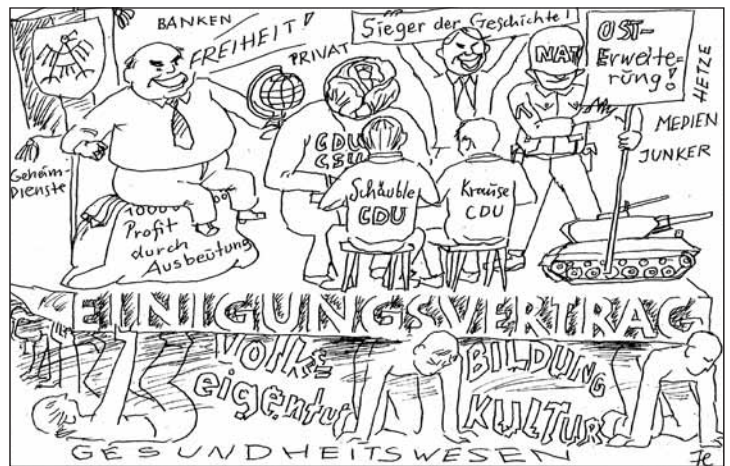 BANKEN
FREIHEIT!
PRIVAT
Sieger der Geschichte!
NAT
OST-
Erweite-
rung!
HETZE
MEDIEN
JUNKER
Geheim-
Dienste
CDU
CSU
Schäuble
CDU
Krause
CDU
Profit
durch
Ausbeutung
EINIGUNGSVERTRAG
Volks-
eigentum
BILDUNG
KULTUR
GESUNDHEITSWESEN